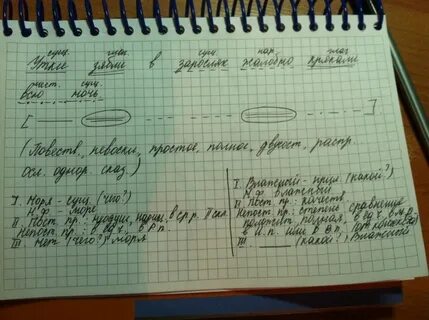 сущ. сущ. сущ. нар. глаг
Утки в зарослях жалобно крякали
мест. сущ.
всю ночь
[ ]
(Повеств., невоскл., простое, полное, двусост., распр.
осл. однор. сказ.)
I. Моря - сущ. (что?)
Н.Ф. море
II Пост. пр.: нариц., в ср.р. II скл.
Непост. пр.: в ед.ч., в Р.п.
III Нет (чего?) моря
I. Влажный - прил (какой?)
Н.Ф. влажный
II Пост. пр.: качеств.
Непост. пр.: степень сравнения
полная, в ед.ч. в м.р.
в И.п. или в В.п.
III (какой?) Влажный